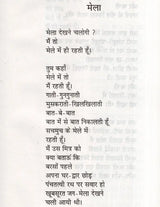 मेला
मेला देखने चलोगी ?
मैं तो
मेले में ही रहती हूँ।
तुम कहाँ
मेले में तो
मैं रहती हूँ।
गाती-गुनगुनाती
मुसकराती-खिलखिलाती
बात-बे-बात
बात में से बात निकालती हूँ
सचमुच के मेले में
रहती हूँ।
मैं उस मित्र को
क्या बताऊँ कि
बरसों पहले
अपना घर-द्वार छोड़
पंचतत्वी रथ पर सवार हो
खूबसूरत जन-मेला देखने
चली आयी थी।